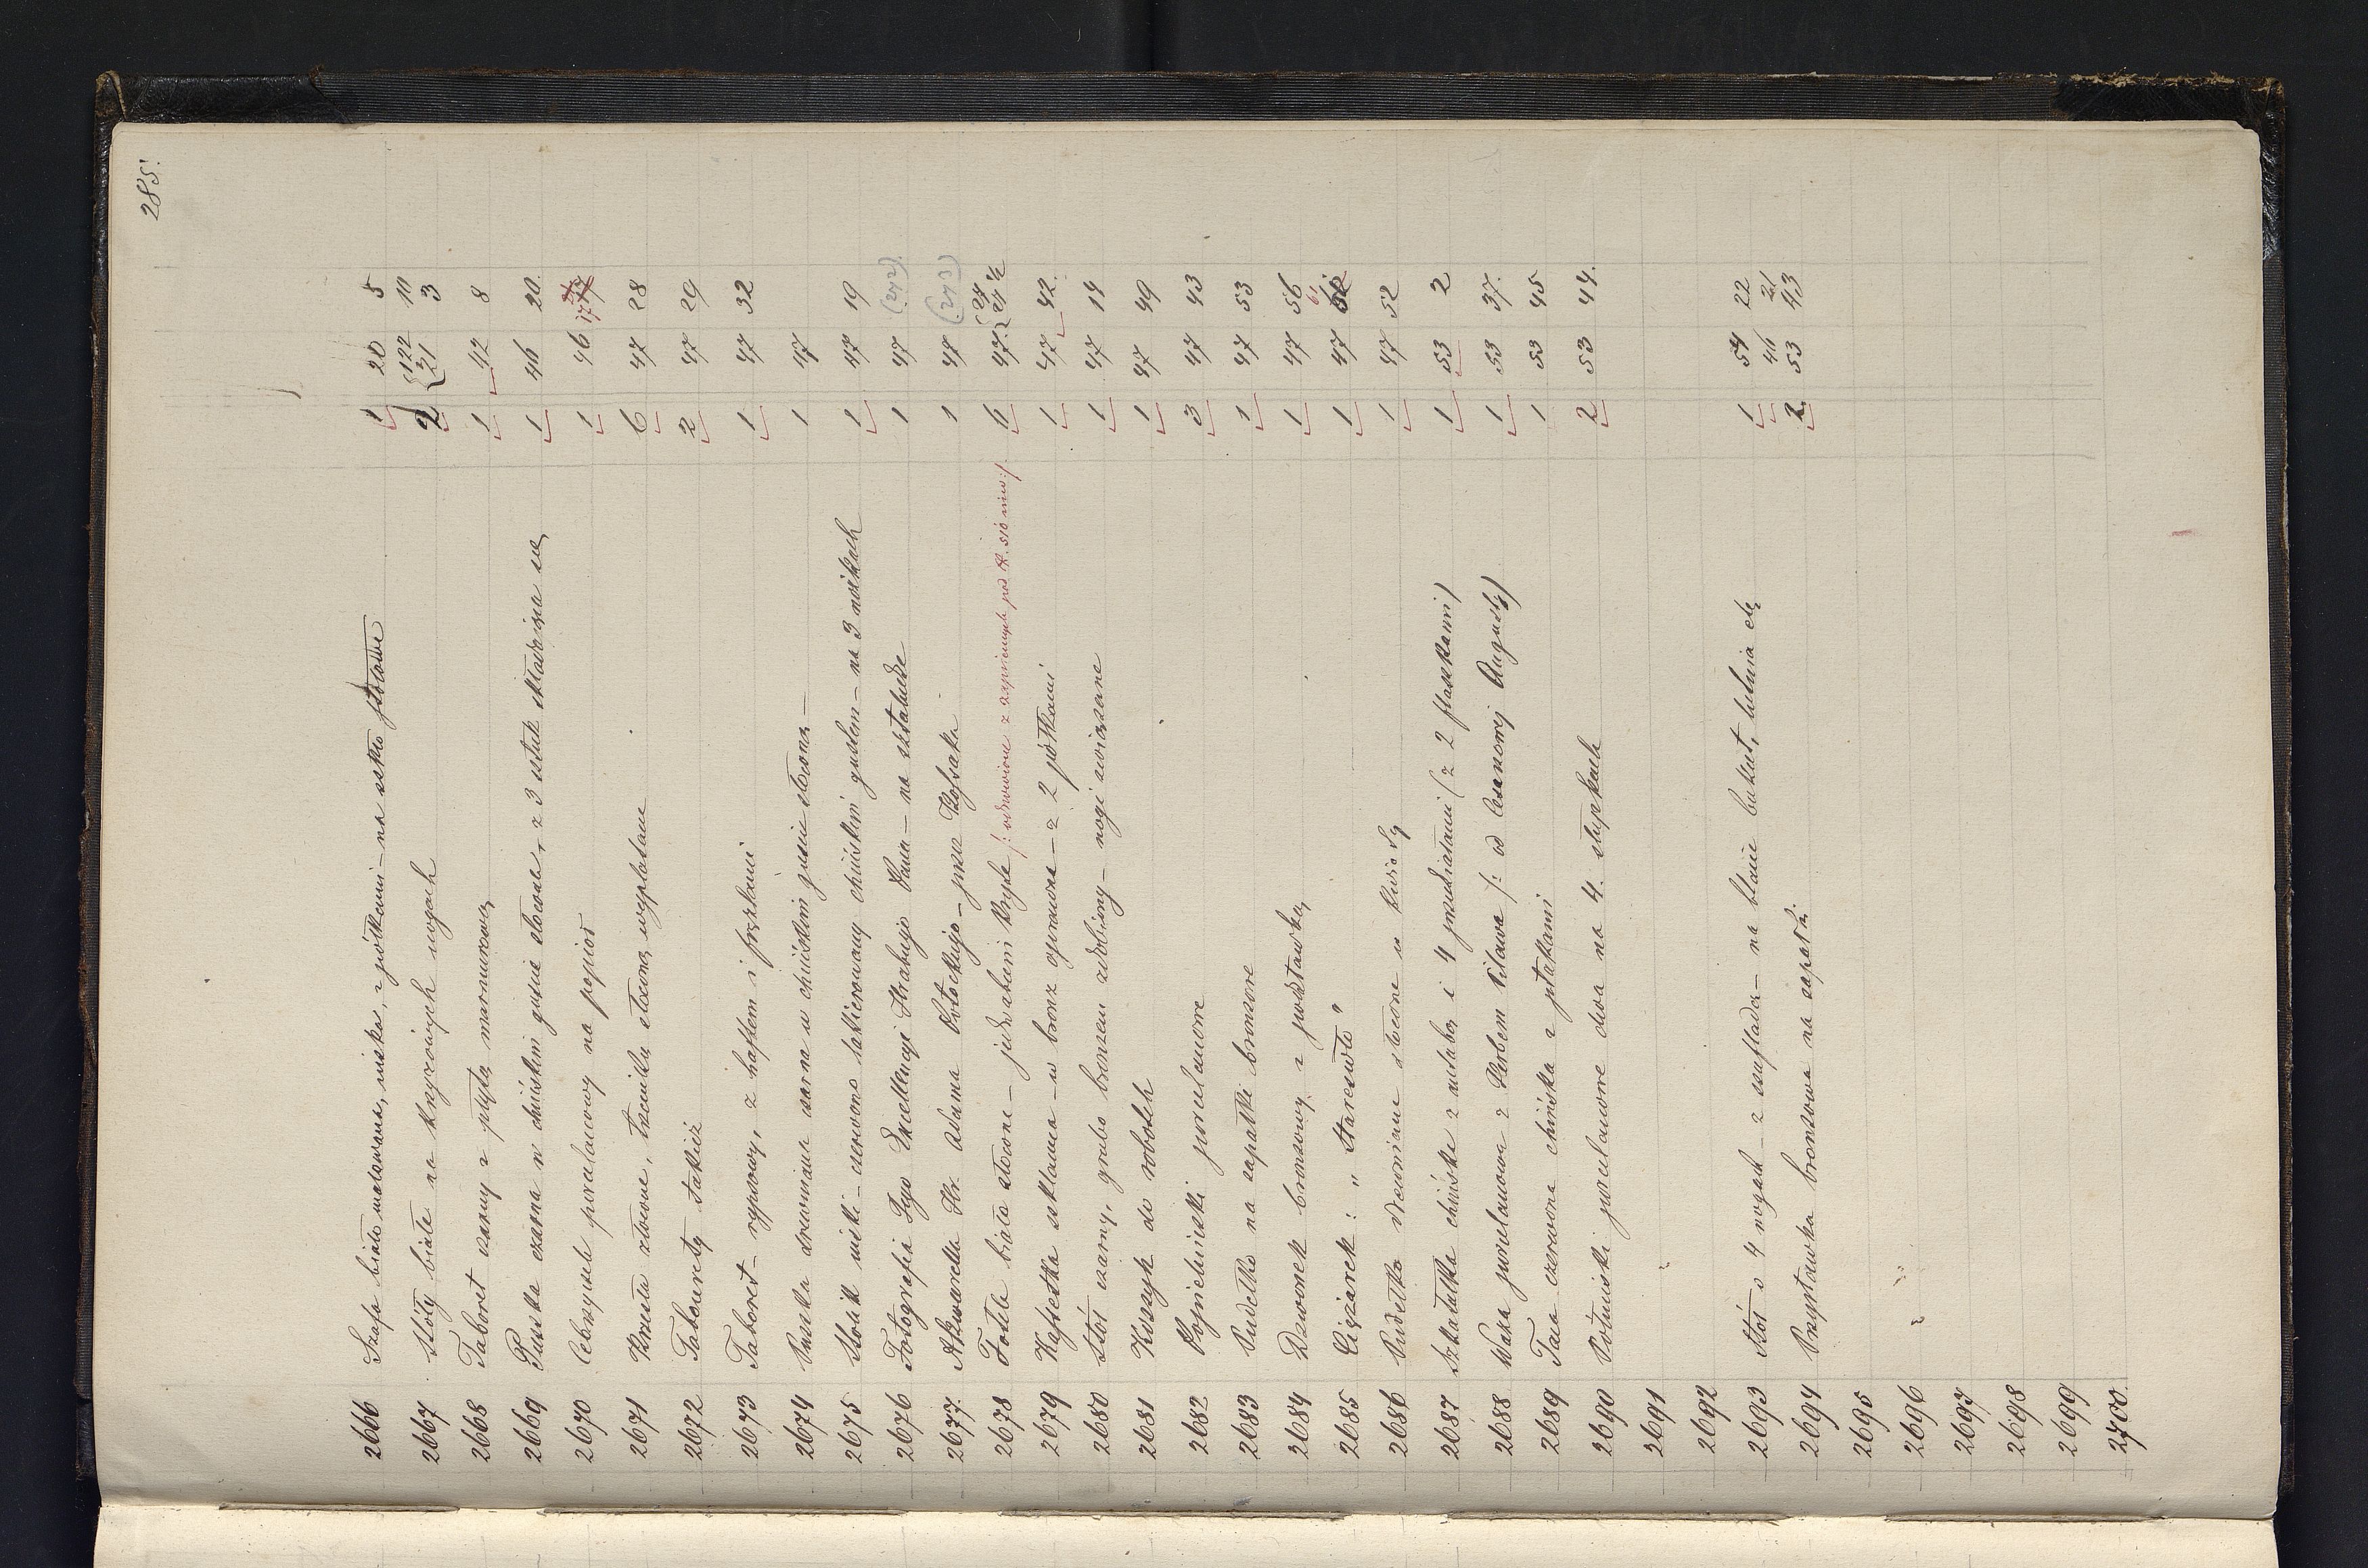 285.
2666 Szafa biało malowana, niska, z półkami – na szkło stołowe 1 20 5
2667 Stoły białe na krzyżowych nogach 2 122 10
21 3
2668 Taboret czarny z płytą marmurową 1 42 8
2669 Puszka czarna w chińskim guście złocona, z 3 sztuk składająca się 1 46 20
2670 Cebrzyczek porcelanowy na popiół 1 46 17
2671 Krzesła złocone, trzciną złoconą wyplatane 6 47 28
2672 Taborety takież 2 47 29
2673 Taboret – rypsowy, z haftem i fręzlami 1 47 32
2674 Puszka drewniana czarna w chińskim guście złocona – 1 47
2675 Stolik niski – czerwono lakierowany chińskim gustem – na 3 nóżkach 1 47 19
2676 Fotografia Jego Excellencyi Hrabiego Pana – na sztaludze 1 47 (272)
2677 Akwarella Hr. Adama Potockiego – przez Kossaka 1 47 (273)
2678 Fotele biało złocone – jedwabiem kryte /: odnowione z zapisanych pod N. 510 inw:/ 6 47 24
24 1/2
2679 Kasetka szklanna – w bronz oprawna – z 2 półkami 1 47 42.
2680 Stół czarny, grubo bronzem zdobiony – nogi związane 1 47 14
2681 Koszyk do robótek 1 47 49
2682 Popielniczki porcelanowe 3 47 43
2683 Pudełko na zapałki bronzowe 1 47 53
2684 Dzwonek bronzowy z podstawką 1 47 56
2685 Ciężarek: „Stareswto" 1 47
2686 Pudełko drewniane złocone w kwiaty 1 47 52
2687 Szkatułka chińska z metalu i 4 przedziałami (z 2 flaszkami) 1 53 2
2688 Waza porcelanowa z Herbem Pilawa /: od Cesarzowej Augusty/ 1 53 37.
2689 Taca czerwona chińska z ptakami 1 53 45
2690 Półmiski porcelanowe dwa na 4. słupkach 2 53 44.
2691
2692
2693 Stół o 4 nogach – z szufladą – na blacie bukiet, lutnia etc 1 54 22
46 21
2694 Przystawka bronzowa na zapałki 2. 53 43
2695
2696
2697
2698
2699
2700.